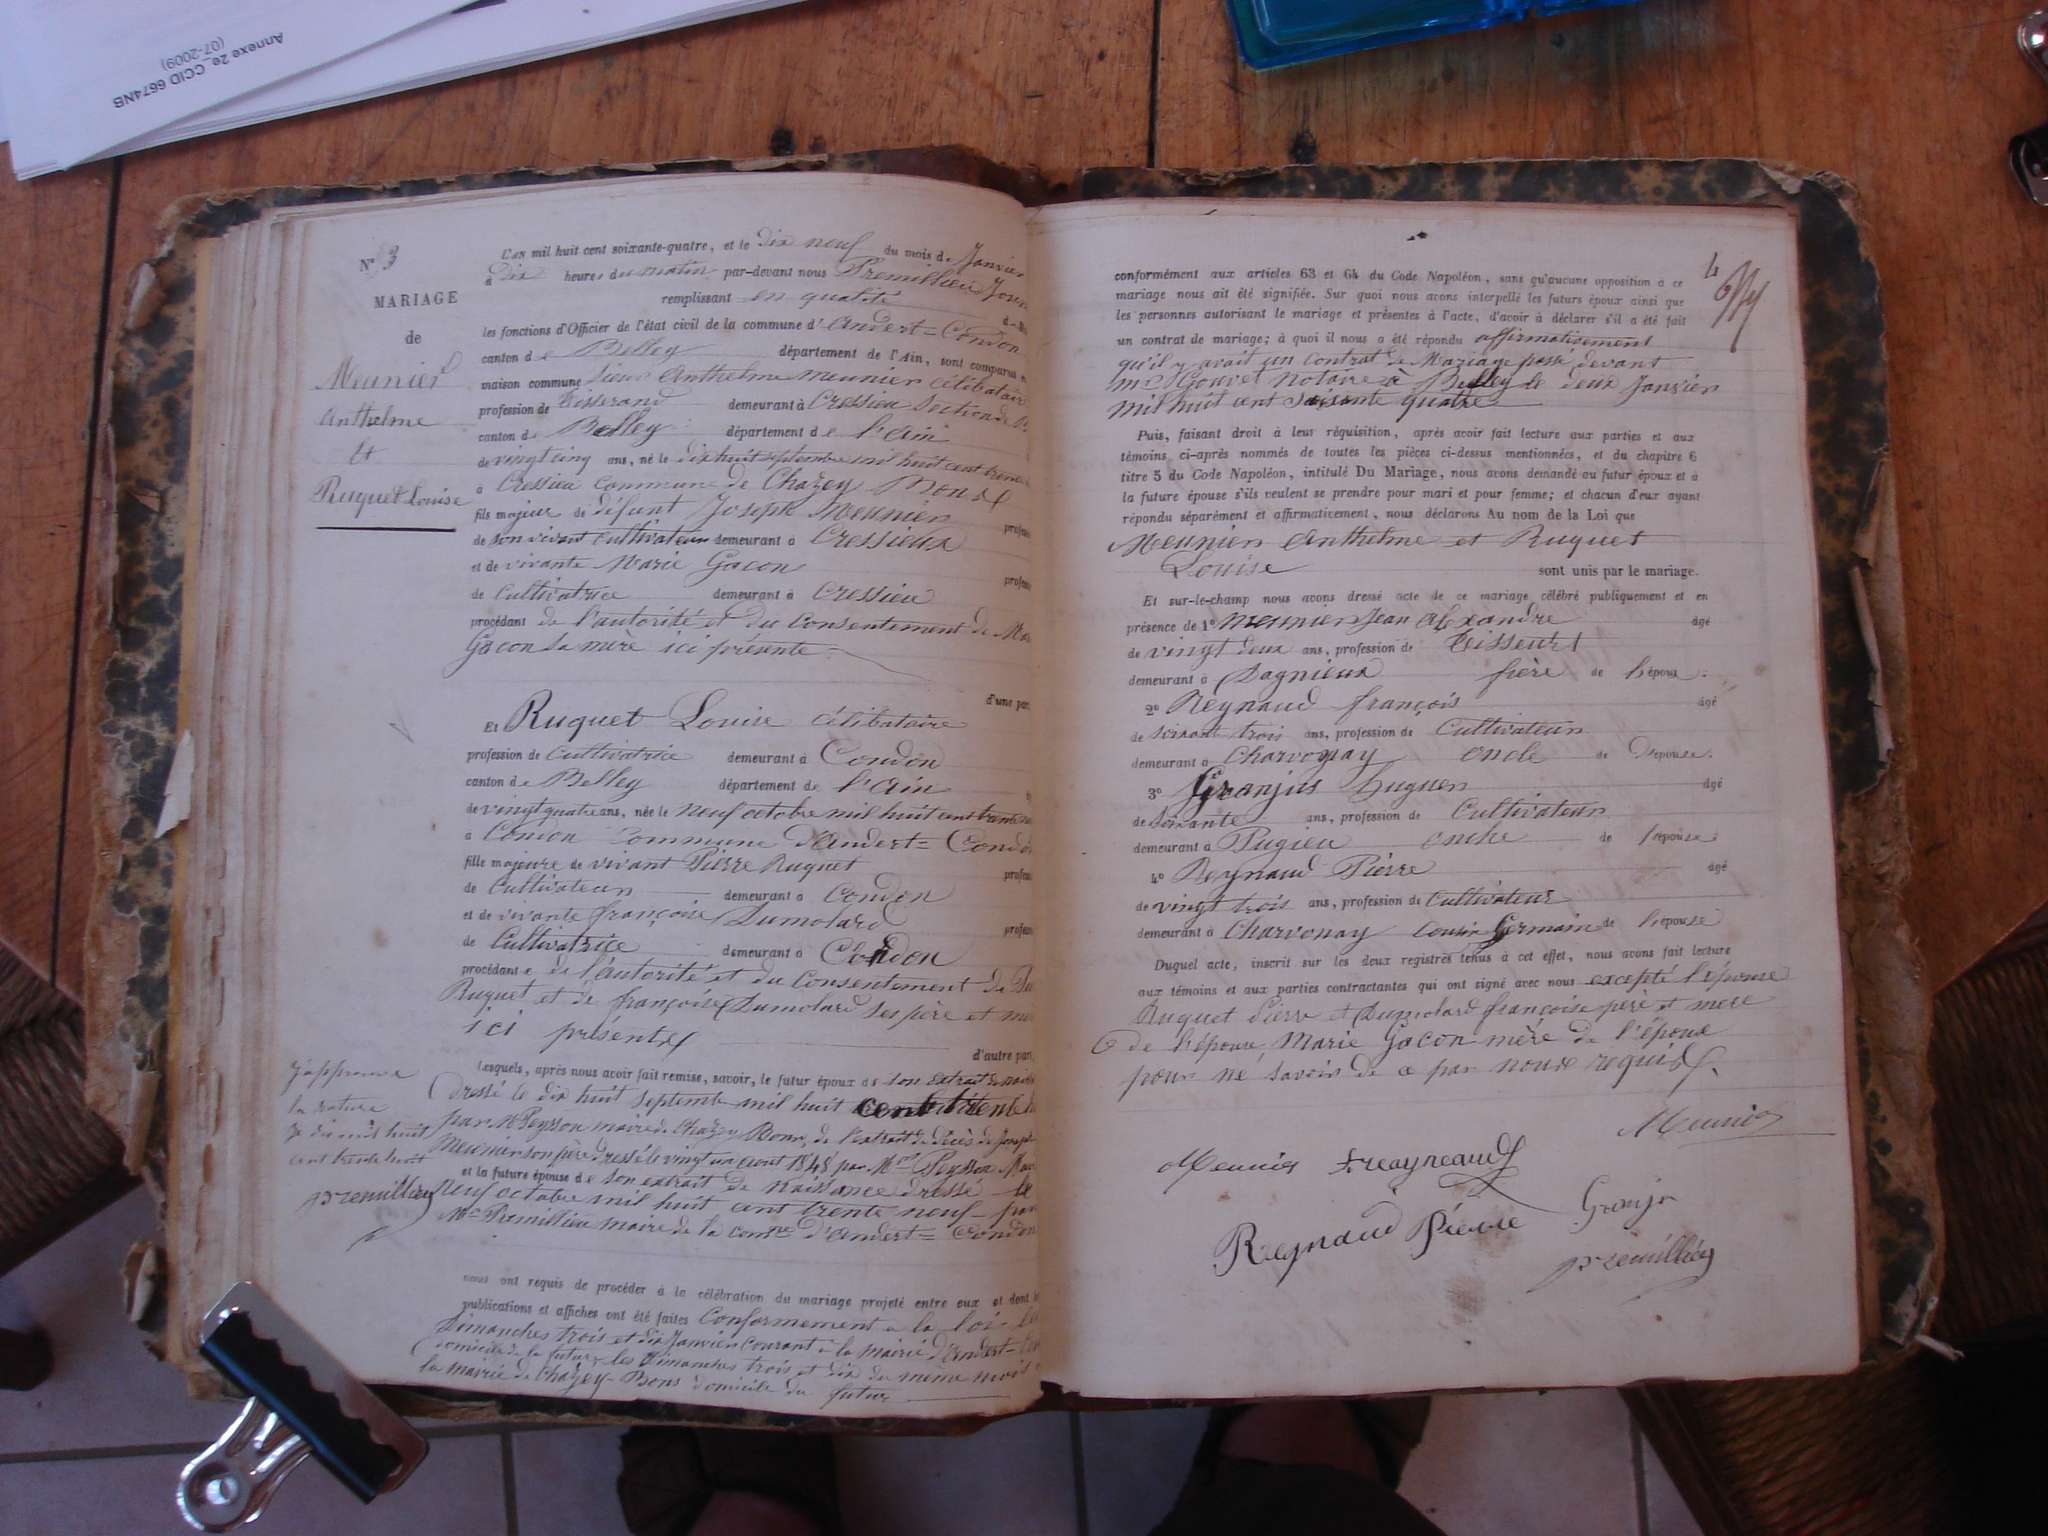 Annexe 2e_CCID 6674NB
(07-2009)
N° 3
MARIAGE
de
Meunier
Anthelme
et
Ruquet Louise
L'AN mil huit cent soixante-quatre, et le dix neuf du mois de Janvier
à dix heures du matin par-devant nous Premillieu
remplissant en qualité
les fonctions d'Officier de l'état civil de la commune d'Andert=Condon
canton de Belley département de l'Ain, sont comparus
maison commune Sieur Anthelme Meunier célibataire
profession de Tisserand demeurant à Cressieu Section de
canton de Belley département de l'Ain
de vingt cinq ans, né le dix huit septembre mil huit cent trente
à Cressieu commune de Chazey Bons
fils majeur de défunt Joseph Meunier
de son vivant cultivateur demeurant à Cressieux
et de vivante Marie Gacon
de Cultivatrice demeurant à Cressieu
procédant de l'autorité et du Consentement de
Gacon sa mère ici présente
d'une part
Et Ruquet Louise célibataire
profession de Cultivatrice demeurant à Condon
canton de Belley département de l'Ain
de vingt quatre ans, née le neuf octobre mil huit cent trente
à Condon Commune d'Andert=Condon
fille majeure de vivant Pierre Ruquet
de Cultivateur demeurant à Condon
et de vivante françoise Dumolard
de Cultivatrice demeurant à Condon
procédant de l'autorité et du Consentement de
Ruquet et de françoise Dumolard ses père et
ici présents
d'autre part,
Lesquels, après nous avoir fait remise, savoir, le futur époux de son extrait de
dressé le dix huit septembre mil huit cent trente
par Mr Peysson maire de Chazey Bons, de l'extrait de décès de Joseph
Meunier son père dressé le vingt un août 1848 par Mr Peysson
et la future épouse de son extrait de Naissance dressé le
neuf octobre mil huit cent trente neuf par
Mr Premillieu maire de la comne d'Andert=Condon
J'approuve
la rature
Je dis mil huit
cent trente huit
premillieu
nous ont requis de procéder à la célébration du mariage projeté entre eux et dont
publications et affiches ont été faites Conformement à la loi les
Dimanches trois et dix Janvier courant à la mairie d'Andert=
domicile de la future, les dimanches trois et dix du même mois
la mairie de Chazey-Bons domicile du futur
4
conformément aux articles 63 et 64 du Code Napoléon, sans qu'aucune opposition à ce
mariage nous ait été signifiée. Sur quoi nous avons interpellé les futurs époux ainsi que
les personnes autorisant le mariage et présentes à l'acte, d'avoir à déclarer s'il a été fait
un contrat de mariage; à quoi il nous a été répondu affirmativement
qu'il y avait un Contrat de Mariage passé devant
Mr Gouvet Notaire à Belley le deux Janvier
mil huit cent soixante quatre
Puis, faisant droit à leur réquisition, après avoir fait lecture aux parties et aux
témoins ci-après nommés de toutes les pièces ci-dessus mentionnées, et du chapitre 6
titre 5 du Code Napoléon, intitulé Du Mariage, nous avons demandé au futur époux et à
la future épouse s'ils veulent se prendre pour mari et pour femme; et chacun d'eux ayant
répondu séparément et affirmativement, nous déclarons Au nom de la Loi que
Meunier Anthelme et Ruquet
Louise
sont unis par le mariage.
Et sur-le-champ nous avons dressé acte de ce mariage célébré publiquement et en
présence de 1° Meunier Jean Alexandre âgé
de vingt deux ans, profession de Tisseur
demeurant à Dagnieux frère de l'époux.
2° Reynaud françois âgé
de soixante trois ans, profession de Cultivateur
demeurant à Charvonay oncle de l'épouse.
3° Granjus huguen âgé
de soixante ans, profession de Cultivateur
demeurant à Pugieu oncle de l'épouse
4° Reynaud Pierre âgé
de vingt trois ans, profession de Cultivateur
demeurant à Charvonay Cousin Germain de l'épouse
Duquel acte, inscrit sur les deux registres tenus à cet effet, nous avons fait lecture
aux témoins et aux parties contractantes qui ont signé avec nous excepté l'épouse
Ruquet Pierre et Dumolard françoise père et mere
de l'épouse, Marie Gacon mère de l'époux
pour ne savoir de ce par nous requis.
Meunier
Meunier freayneaud
Reynaud Pierre
premillieu